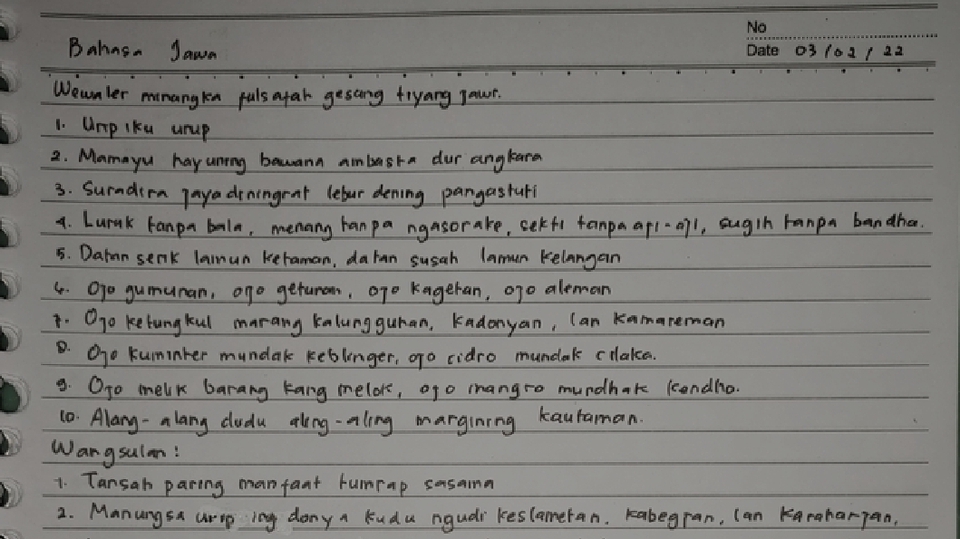 No
Bahasa Jawa
Date 03/02/22
Wewaler minangka falsafah gesang tiyang jawi.
1. Urip iku urup
2. Mamayu hayuning bawana ambasta dur angkara
3. Suradira jayadiningrat lebur dening pangastuti
4. Luruk tanpa bala, menang tanpa ngasorake, sekti tanpa aji-aji, sugih tanpa bandha.
5. Datan serik lamun ketaman, datan susah lamun kelangan
6. Ojo gumunan, ojo getunan, ojo kagetan, ojo aleman
7. Ojo ketungkul marang kalungguhan, kadonyan, lan kamareman
8. Ojo kuminter mundak keblinger, ojo cidro mundak cilaka.
9. Ojo melik barang kang melok, ojo mangro mundhak kendho.
10. Alang-alang dudu aling-aling margining kautaman.
Wangsulan:
1. Tansah paring manfaat tumrap sasama
2. Manungsa urip ing donya kudu ngudi keslametan, kabegjan, lan karaharjan,